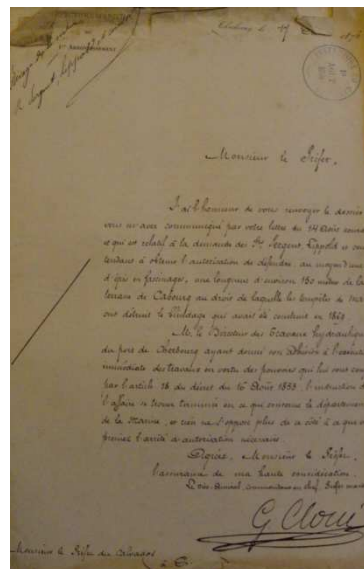 1er Arrondissement
Cherbourg, le 27 1876
Monsieur le Préfet,
J'ai l'honneur de vous renvoyer le dossier
vous m'avez communiqué par votre lettre du 14 Août
et qui est relatif à la demande des Srs Sergent, Lippold et
tendant à obtenir l'autorisation de défendre, au moyen
d'épis en fascinages, une longueur d'environ 150 mètres de la
terrain de Cabourg au droit de laquelle les tempêtes de
ont détruit le qui avait été construit en 1869.
M. le Directeur des Travaux hydrauliques
du port de Cherbourg ayant donné son adhésion à
immédiate des travaux en vertu des pouvoirs que lui sont
par l'article 16 du décret du 16 Août 1853, l'instruction
l'affaire se trouve terminée en ce qui concerne le département
de la Marine, et rien ne s'oppose plus de ce côté à ce que
prenez l'arrêté d'autorisation nécessaire.
Agréez, Monsieur le Préfet,
l'assurance de ma haute considération.
Le vice-amiral commandant en chef, Préfet
G Cloué
Monsieur le Préfet du Calvados
à C.